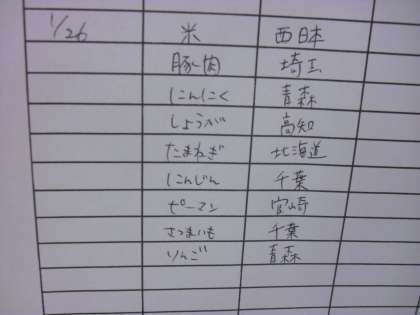 1/26 米 西日本
豚肉 埼玉
にんにく 青森
しょうが 高知
たまねぎ 北海道
にんじん 千葉
ピーマン 宮崎
さつまいも 千葉
りんご 青森